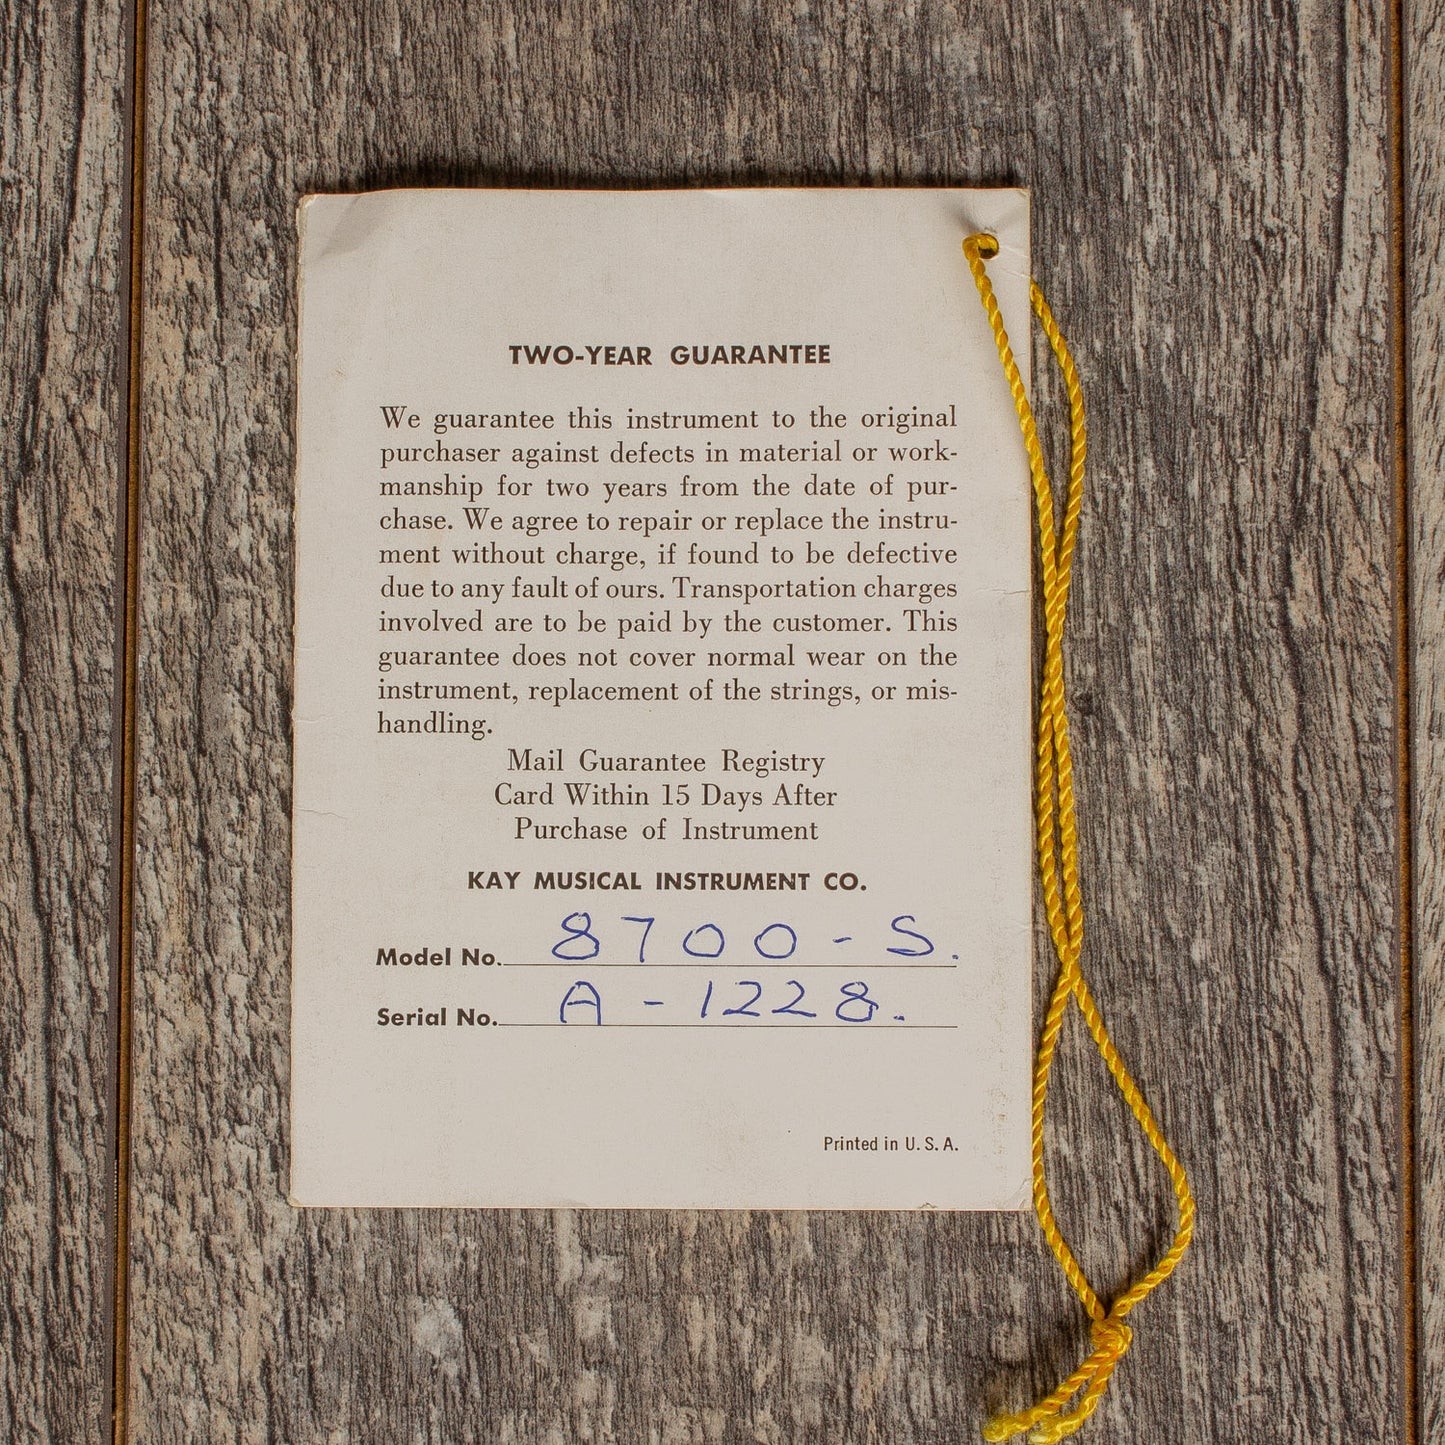 TWO-YEAR GUARANTEE
We guarantee this instrument to the original
purchaser against defects in material or work-
manship for two years from the date of pur-
chase. We agree to repair or replace the instru-
ment without charge, if found to be defective
due to any fault of ours. Transportation charges
involved are to be paid by the customer. This
guarantee does not cover normal wear on the
instrument, replacement of the strings, or mis-
handling.
Mail Guarantee Registry
Card Within 15 Days After
Purchase of Instrument
KAY MUSICAL INSTRUMENT CO.
Model No. 8700-S.
Serial No. A-1228.
Printed in U.S.A.